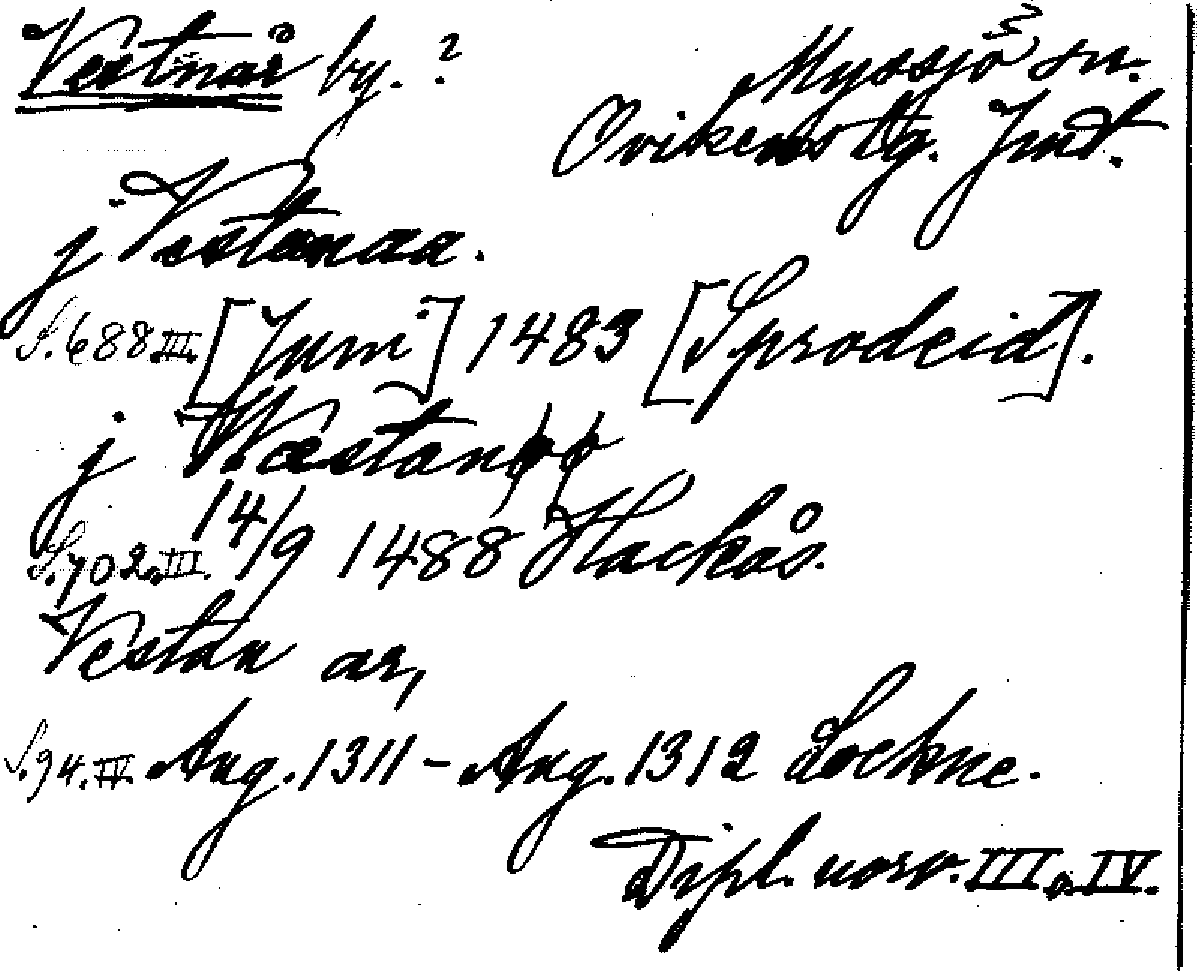 Vestnår by. ?
Myssjö sn.
Ovikens tg. Jmt.
j Vestanaa.
S. 688 III. [Juni] 1483 [Sprodeid].
j Wæstanøø
S. 702. III. 14/9 1488 Hackås.
Vestan ar,
S. 94. IV. Aug. 1311 - Aug. 1312 Lockne.
Dipl. norv. III o. IV.